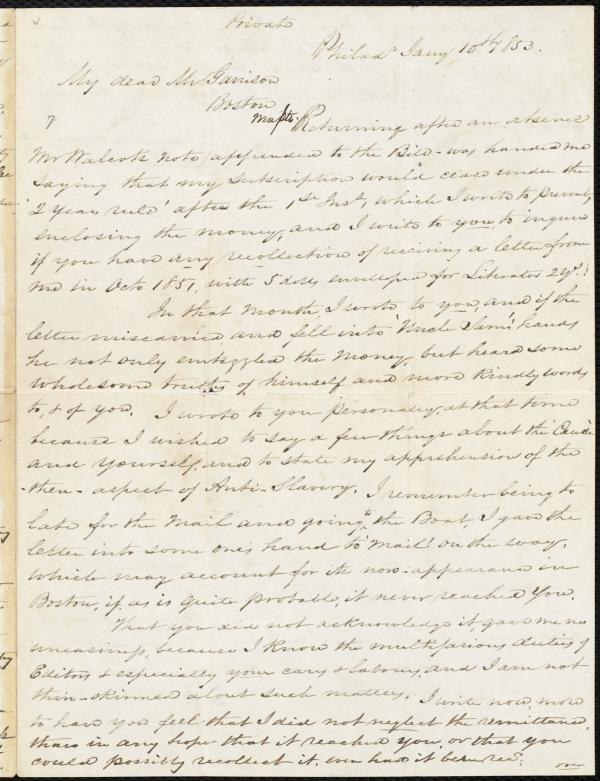 Private
Philada Jany 10th 1853.
My dear Mr Garrison
Boston
Massts. Returning after an absence
Mr Walcots note appended to the Bill - was handed me
saying that my subscription would cease under the
'2 years rule' after the 1st Inst, which I write to prevent,
enclosing the money, and I write to you, to inquire
if you have any recollection of reciving a letter from
me in Octo 1851, with 5 dolls enveloped for Liberator 2 yrs!
In that month, I wrote to you, and if the
letter miscarried and fell into 'Uncle Sam's hands
he not only embezzled the money, but heard some
wholesome truths of himself and more kindly words
to, & of you. I wrote to you personally, at that time
because I wished to say a few things about the Cause
and yourself, and to state my apprehension of the
-then- aspect of Anti-Slavery. I remember being to
late for the Mail and going to the Boat, I gave the
letter into some one's hand to 'Mail' on the way,
which may account for its non-appearance in
Boston, if, as is quite probable, it never reached you.
That you did not acknowledge it, gave me no
uneasiness, because I know the multifarious duties of
Editors & especially your cares & labours, and I am not
thin-skinned about such matters. I write now, more
to have you feel that I did not neglect the remittance,
than in any hope that it reached you, or that you
could possibly recollect it, even had it been recd.
over